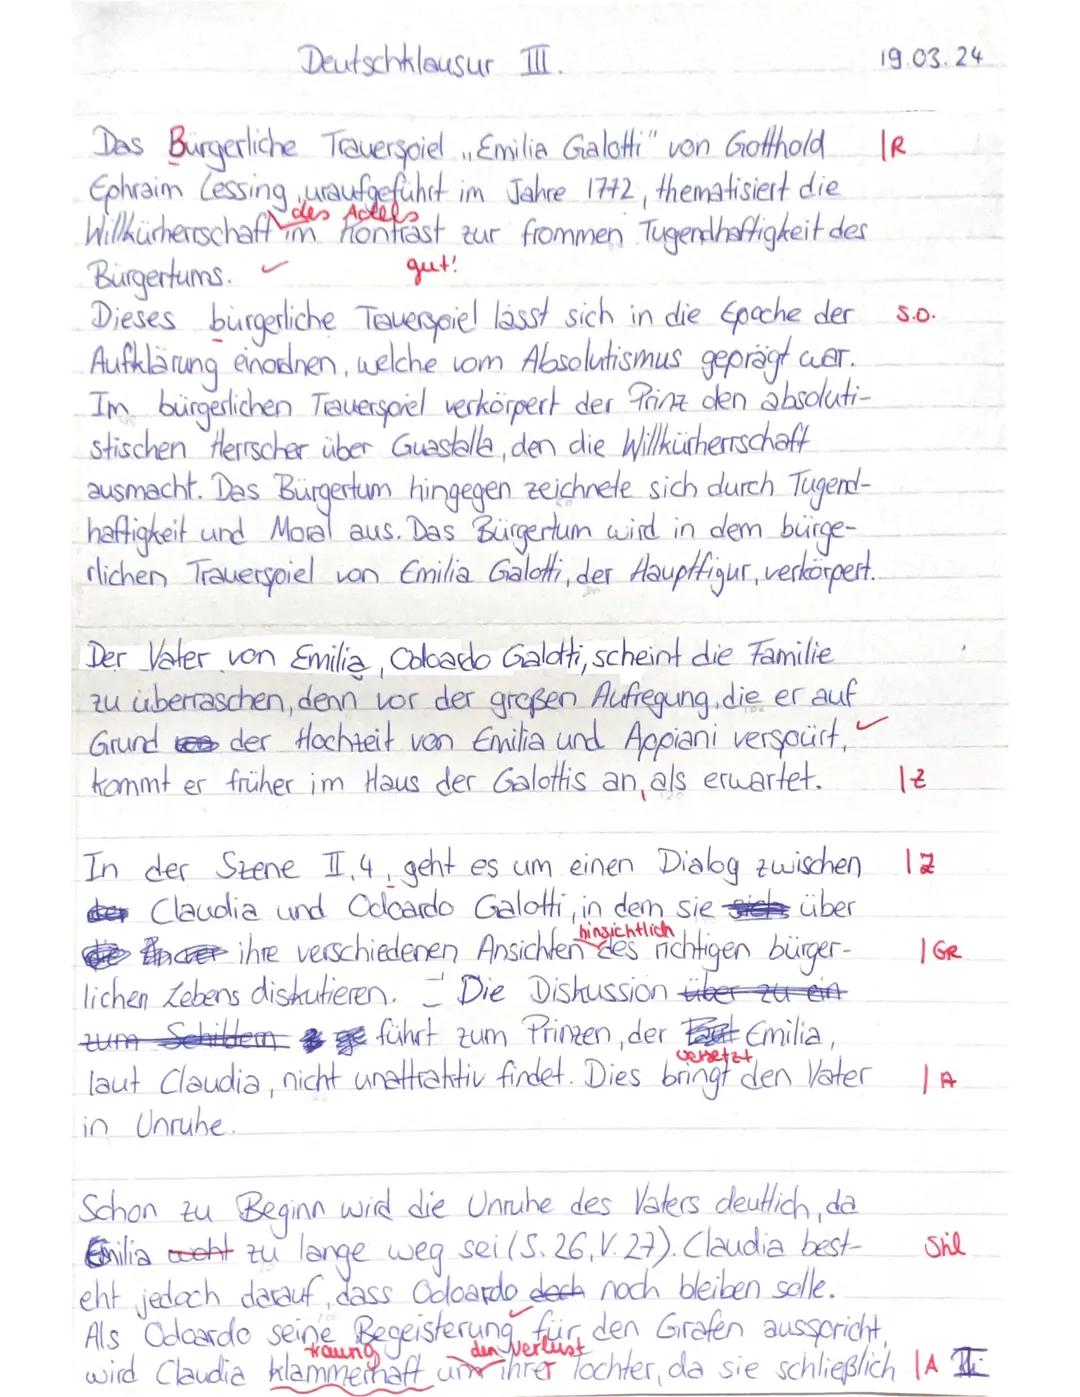 Deutschklausur III. 19.03.24
Das Bürgerliche Trauerspiel „Emilia Galotti" von Gotthold |R
Ephraim Lessing, uraufgeführt im Jahre 1772, thematisiert die
des Adels
Willkürherrschaft im Kontrast zur frommen Tugendhaftigkeit des
Bürgertums. ✓ gut!
Dieses bürgerliche Trauerspiel lässt sich in die Epoche der s.o.
Aufklärung einordnen, welche vom Absolutismus geprägt war.
Im bürgerlichen Trauerspiel verkörpert der Prinz den absoluti-
stischen Herrscher über Guastalla, den die Willkürherrschaft
ausmacht. Das Bürgertum hingegen zeichnete sich durch Tugend-
haftigkeit und Moral aus. Das Bürgertum wird in dem bürge-
rlichen Trauerspiel von Emilia Galotti, der Hauptfigur, verkörpert.
Der Vater von Emilia, Odoardo Galotti, scheint die Familie
zu überraschen, denn vor der großen Aufregung, die er auf
Grund der Hochzeit von Emilia und Appiani verspürt, ✓
kommt er früher im Haus der Galottis an, als erwartet. |Z
In der Szene II,4, geht es um einen Dialog zwischen |Z
der Claudia und Odoardo Galotti, in dem sie sich über
hinsichtlich
ihre verschiedenen Ansichten des richtigen bürger- |GR
lichen Lebens diskutieren. – Die Diskussion über zu ein
zum Schildern führt zum Prinzen, der Emilia,
versetzt
laut Claudia, nicht unattraktiv findet. Dies bringt den Vater |A
in Unruhe.
Schon zu Beginn wird die Unruhe des Vaters deutlich, da
Emilia zu lange weg sei (S. 26, V. 27). Claudia best- Stil
eht jedoch darauf, dass Odoardo doch noch bleiben solle.
Als Odoardo seine Begeisterung für den Grafen ausspricht,
den Verlust
wird Claudia klammerhaft um ihrer Tochter, da sie schließlich |A